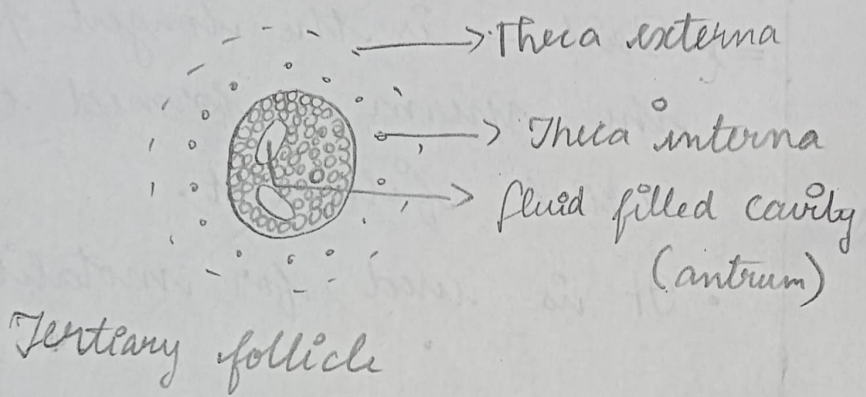 Theca externa
Theca interna
fluid filled cavity
(antrum)
Tertiary follicle